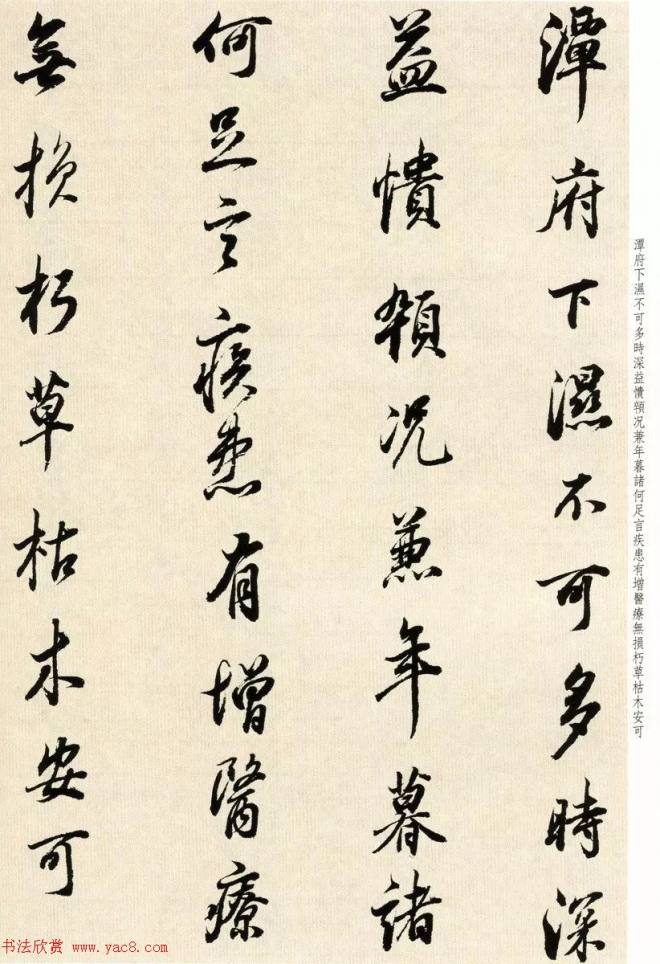 潭府下濕不可多時深
益憒顇况兼年暮諸
何足言疾患有增醫療
無損朽草枯木安可
潭府下濕不可多時深益憒顇况兼年暮諸何足言疾患有增醫療無損朽草枯木安可
书法欣赏 www.yac8.com